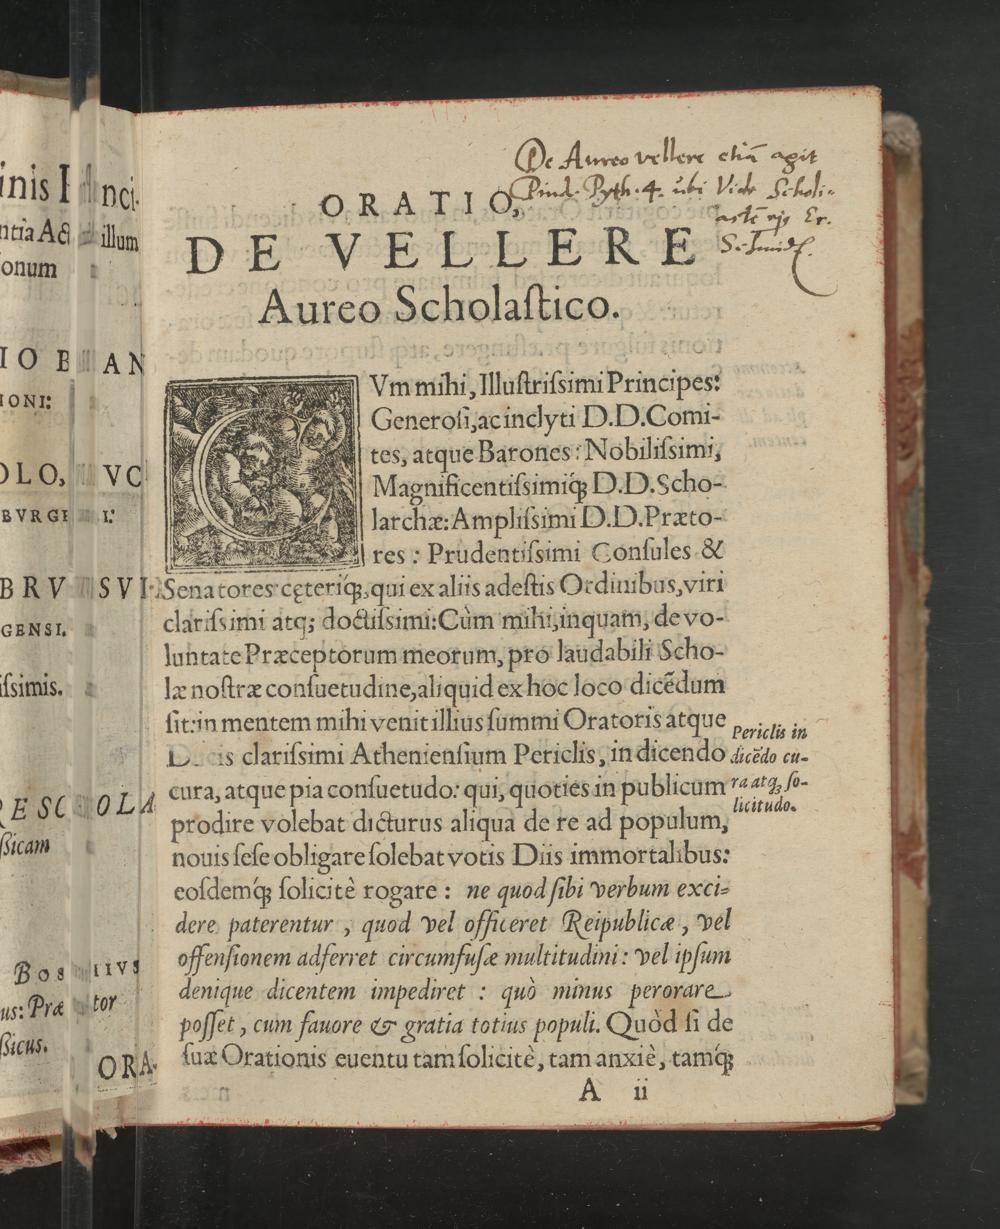 inis Princi-
ntia Act illum
onum
IO B AN
IONI:
OLO, VC
BVRGE I:
BRV SVI-
GENSI.
ißimis.
RE SCHOLA
ßicam
BOS IIVS
us: Præ tor
ßicus.
ORA-
De Aureo vellere etiã agit
Pind. Pyth. 4. ubi Vide Scholi-
ORATIO,
DE VELLERE
Aureo Scholaſtico.
CVm mihi, Illuſtriſsimi Principes:
Generoſi, ac inclyti D.D. Comi-
tes, atque Barones: Nobiliſsimi,
Magnificentiſsimiq́; D.D. Scho-
larchæ: Ampliſsimi D.D. Præto-
res: Prudentiſsimi Conſules &
Senatores cęteriq́;, qui ex aliis adeſtis Ordinibus, viri
clariſsimi atq; doctiſsimi: Cùm mihi, inquam, de vo-
luntate Præceptorum meorum, pro laudabili Scho-
læ noſtræ conſuetudine, aliquid ex hoc loco dicẽdum
ſit: in mentem mihi venit illius ſummi Oratoris atque
Ducis clariſsimi Athenienſium Periclis, in dicendo
cura, atque pia conſuetudo: qui, quoties in publicum
prodire volebat dicturus aliqua de re ad populum,
nouis ſeſe obligare ſolebat votis Diis immortalibus:
eoſdemq́; ſolicitè rogare: ne quod ſibi verbum exci-
dere paterentur, quod vel officeret Reipublicæ, vel
offenſionem adferret circumfuſæ multitudini: vel ipſum
denique dicentem impediret: quò minus perorare
poſſet, cum fauore & gratia totius populi. Quòd ſi de
ſuæ Orationis euentu tam ſolicitè, tam anxiè, tamq́;
Periclis in
dicẽdo cu-
ra atq; ſo-
licitudo.
A ii